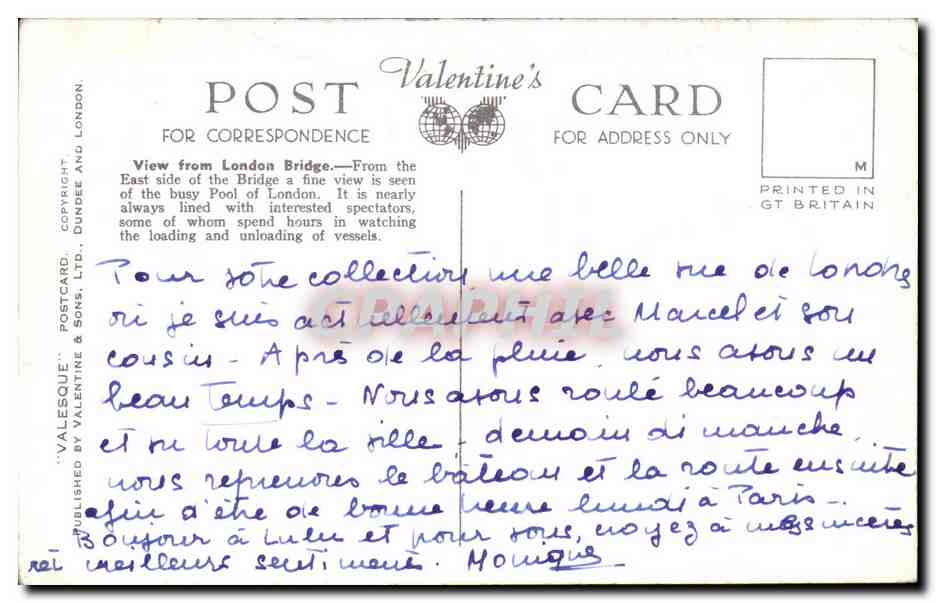 Valentine's
POST CARD
FOR CORRESPONDENCE
FOR ADDRESS ONLY
M
PRINTED IN
GT BRITAIN
View from London Bridge.—From the
East side of the Bridge a fine view is seen
of the busy Pool of London. It is nearly
always lined with interested spectators,
some of whom spend hours in watching
the loading and unloading of vessels.
"VALESQUE" POSTCARD. COPYRIGHT.
PUBLISHED BY VALENTINE & SONS, LTD., DUNDEE AND LONDON.
Pour votre collection, une belle vue de Londres
où je suis actuellement avec Marcel et son
cousin - Après de la pluie, nous avons un
beau Temps - Nous avons roulé beaucoup
et vu toute la ville - demain dimanche,
nous reprenons le bâteau et la route ensuite
afin d'être de bonne heure lundi à Paris -.
Bonjour à Lulu et pour vous, croyez à mes sincères
et meilleurs sentiments. Monique
GRAPHIL